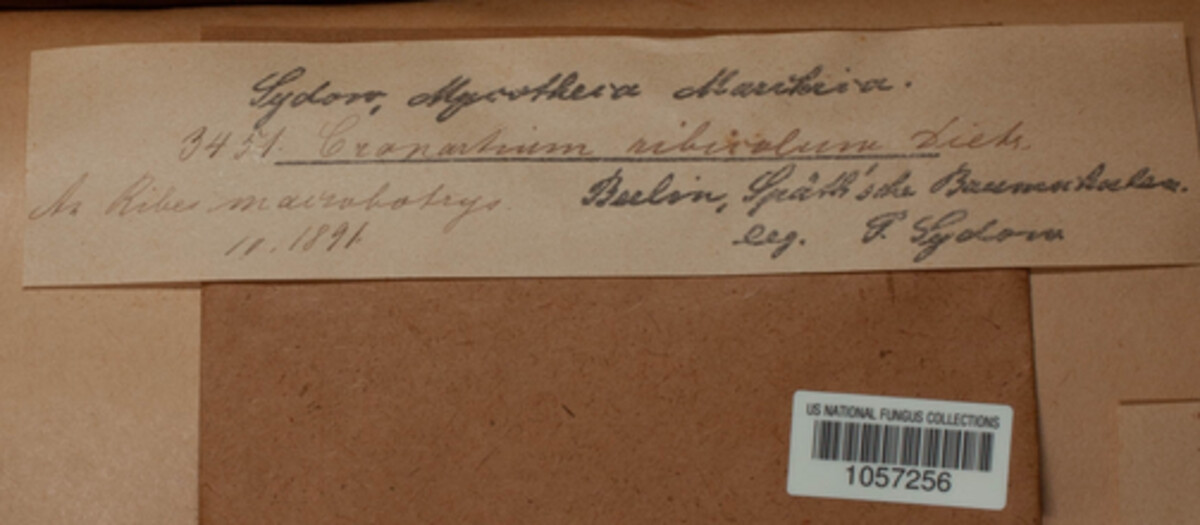 Sydow, Mycotheca Marchica.
3451. Cronartium ribicolum Dietr.
An Ribes macrobotrys. Berlin, Späth'sche Baumschulen.
10. 1891. leg. P. Sydow
US NATIONAL FUNGUS COLLECTIONS
1057256